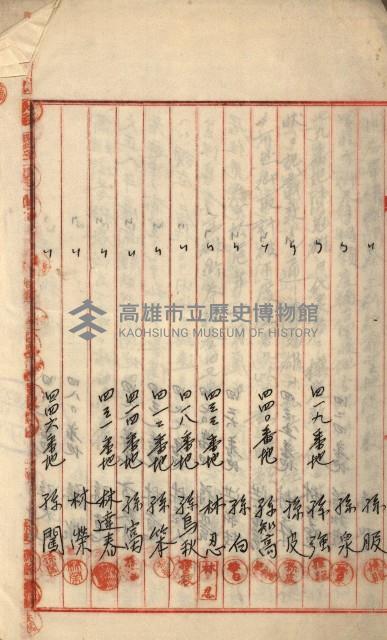 〃 孫服
〃 孫泉
〃 四一九番地 孫強
〃 孫皮
〃 四四〇番地 孫知高
〃 孫白
〃 四三三番地 林忍
〃 四一八番地 孫烏秋
〃 四一二番地 孫笨
〃 番地 孫富
〃 四三一番地 林達春
〃 林榮
〃 四四六番地 孫闊
林忍
高雄市立歷史博物館
KAOHSIUNG MUSEUM OF HISTORY